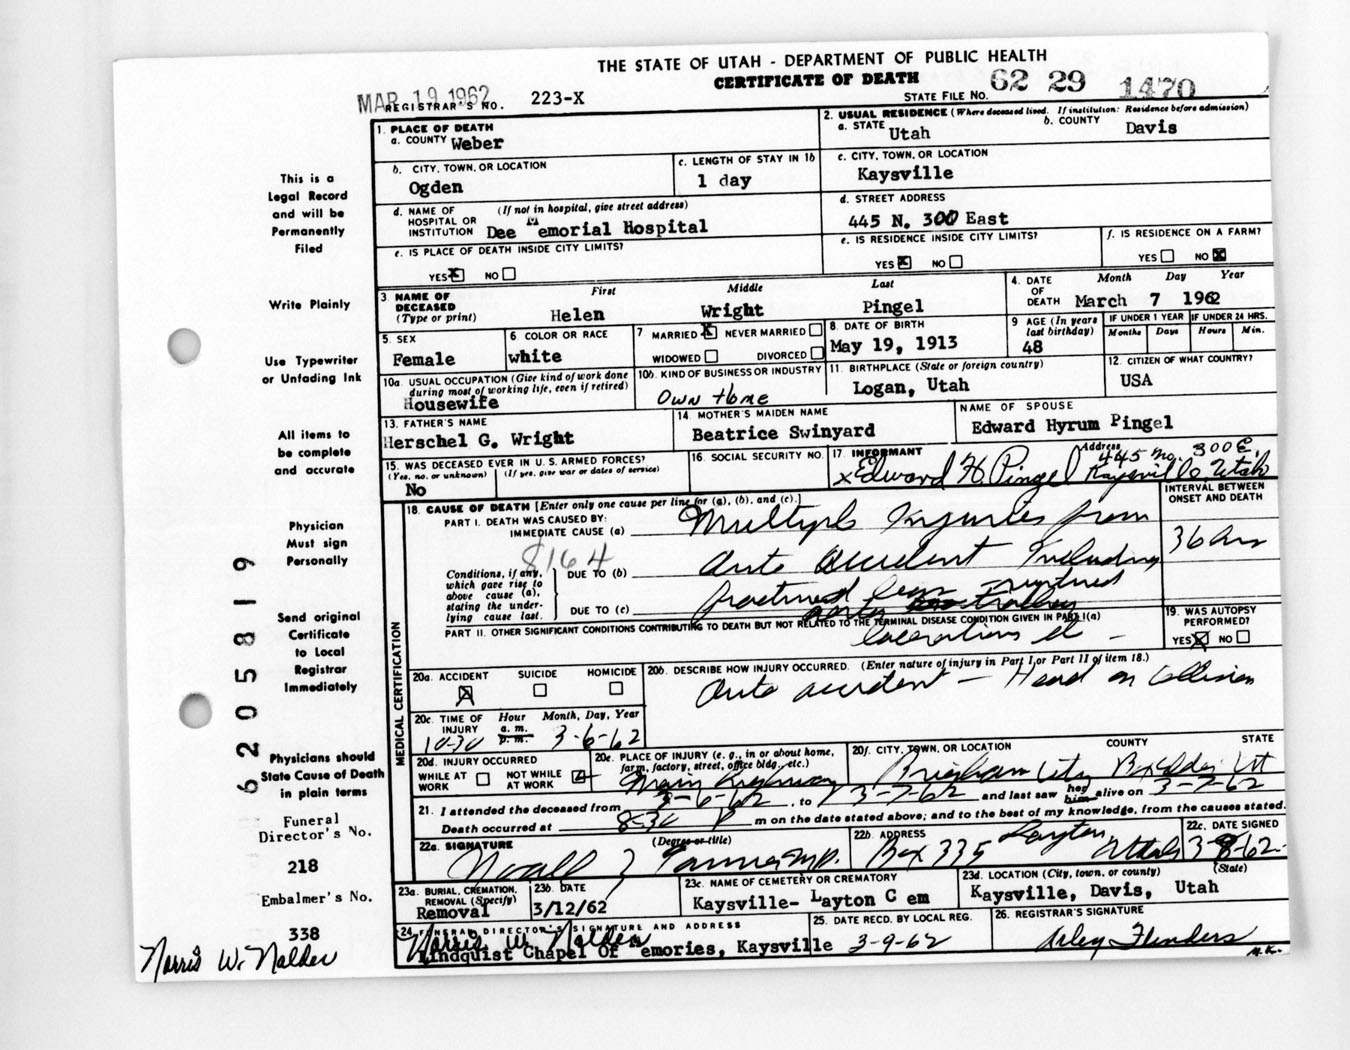 THE STATE OF UTAH - DEPARTMENT OF PUBLIC HEALTH
CERTIFICATE OF DEATH
MAR 19 1962
REGISTRAR'S NO. 223-X
STATE FILE NO. 62 29 1470
1. PLACE OF DEATH
a. COUNTY Weber
2. USUAL RESIDENCE (Where deceased lived. If institution: Residence before admission)
a. STATE Utah b. COUNTY Davis
b. CITY, TOWN, OR LOCATION
Ogden
c. LENGTH OF STAY IN 1b
1 day
c. CITY, TOWN, OR LOCATION
Kaysville
d. NAME OF HOSPITAL OR INSTITUTION (If not in hospital, give street address)
Dee Memorial Hospital
d. STREET ADDRESS
445 N. 300 East
e. IS PLACE OF DEATH INSIDE CITY LIMITS?
YES X NO
e. IS RESIDENCE INSIDE CITY LIMITS?
YES X NO
f. IS RESIDENCE ON A FARM?
YES NO X
3. NAME OF DECEASED (Type or print)
First Middle Last
Helen Wright Pingel
4. DATE OF DEATH Month Day Year
March 7 1962
5. SEX
Female
6 COLOR OR RACE
white
7 MARRIED X NEVER MARRIED
WIDOWED DIVORCED
8. DATE OF BIRTH
May 19, 1913
9 AGE (In years last birthday)
48
IF UNDER 1 YEAR IF UNDER 24 HRS.
Months Days Hours Min.
10a. USUAL OCCUPATION (Give kind of work done during most of working life, even if retired)
Housewife
10b. KIND OF BUSINESS OR INDUSTRY
Own Home
11. BIRTHPLACE (State or foreign country)
Logan, Utah
12. CITIZEN OF WHAT COUNTRY?
USA
13. FATHER'S NAME
Herschel G. Wright
14. MOTHER'S MAIDEN NAME
Beatrice Swinyard
NAME OF SPOUSE
Edward Hyrum Pingel
15. WAS DECEASED EVER IN U. S. ARMED FORCES?
(Yes, no, or unknown) (If yes, give war or dates of service)
No
16. SOCIAL SECURITY NO.
17. INFORMANT Address
x Edward H. Pingel 445 No. 300 E. Kaysville Utah
18. CAUSE OF DEATH [Enter only one cause per line for (a), (b), and (c).]
INTERVAL BETWEEN ONSET AND DEATH
PART I. DEATH WAS CAUSED BY:
IMMEDIATE CAUSE (a) Multiple Injuries from
36 hrs
8164
Conditions, if any, which gave rise to above cause (a), stating the underlying cause last.
DUE TO (b) Auto Accident Including
DUE TO (c) fractured ruptured
PART II. OTHER SIGNIFICANT CONDITIONS CONTRIBUTING TO DEATH BUT NOT RELATED TO THE TERMINAL DISEASE CONDITION GIVEN IN PART I(a)
lacerations
19. WAS AUTOPSY PERFORMED?
YES X NO
20a. ACCIDENT SUICIDE HOMICIDE
X
20b. DESCRIBE HOW INJURY OCCURRED. (Enter nature of injury in Part I or Part II of item 18.)
Auto accident - Head on Collision
20c. TIME OF INJURY Hour Month, Day, Year
10-30 a. m. p. m. 3-6-62
20d. INJURY OCCURRED
WHILE AT WORK NOT WHILE AT WORK
20e. PLACE OF INJURY (e. g., in or about home, farm, factory, street, office bldg., etc.)
Main Highway
20f. CITY, TOWN, OR LOCATION COUNTY STATE
Brigham City Box Elder Ut
21. I attended the deceased from 3-6-62, to 3-7-62 and last saw her him alive on 3-7-62
Death occurred at 8-30 P m on the date stated above; and to the best of my knowledge, from the causes stated.
22a. SIGNATURE (Degree or title)
22b. ADDRESS
Box 335 Layton Utah
22c. DATE SIGNED
3-8-62
23a. BURIAL, CREMATION, REMOVAL (Specify)
Removal
23b. DATE
3/12/62
23c. NAME OF CEMETERY OR CREMATORY
Kaysville- Layton Cem
23d. LOCATION (City, town, or county) (State)
Kaysville, Davis, Utah
24. FUNERAL DIRECTOR'S SIGNATURE AND ADDRESS
Norris W. Nalder
Lindquist Chapel Of Memories, Kaysville
25. DATE RECD. BY LOCAL REG.
3-9-62
26. REGISTRAR'S SIGNATURE
Arley Flinders
M.K.
This is a
Legal Record
and will be
Permanently
Filed
Write Plainly
Use Typewriter
or Unfading Ink
All items to
be complete
and accurate
Physician
Must sign
Personally
Send original
Certificate
to Local
Registrar
Immediately
Physicians should
State Cause of Death
in plain terms
Funeral
Director's No.
218
Embalmer's No.
338
Norris W. Nalder
6205819
MEDICAL CERTIFICATION